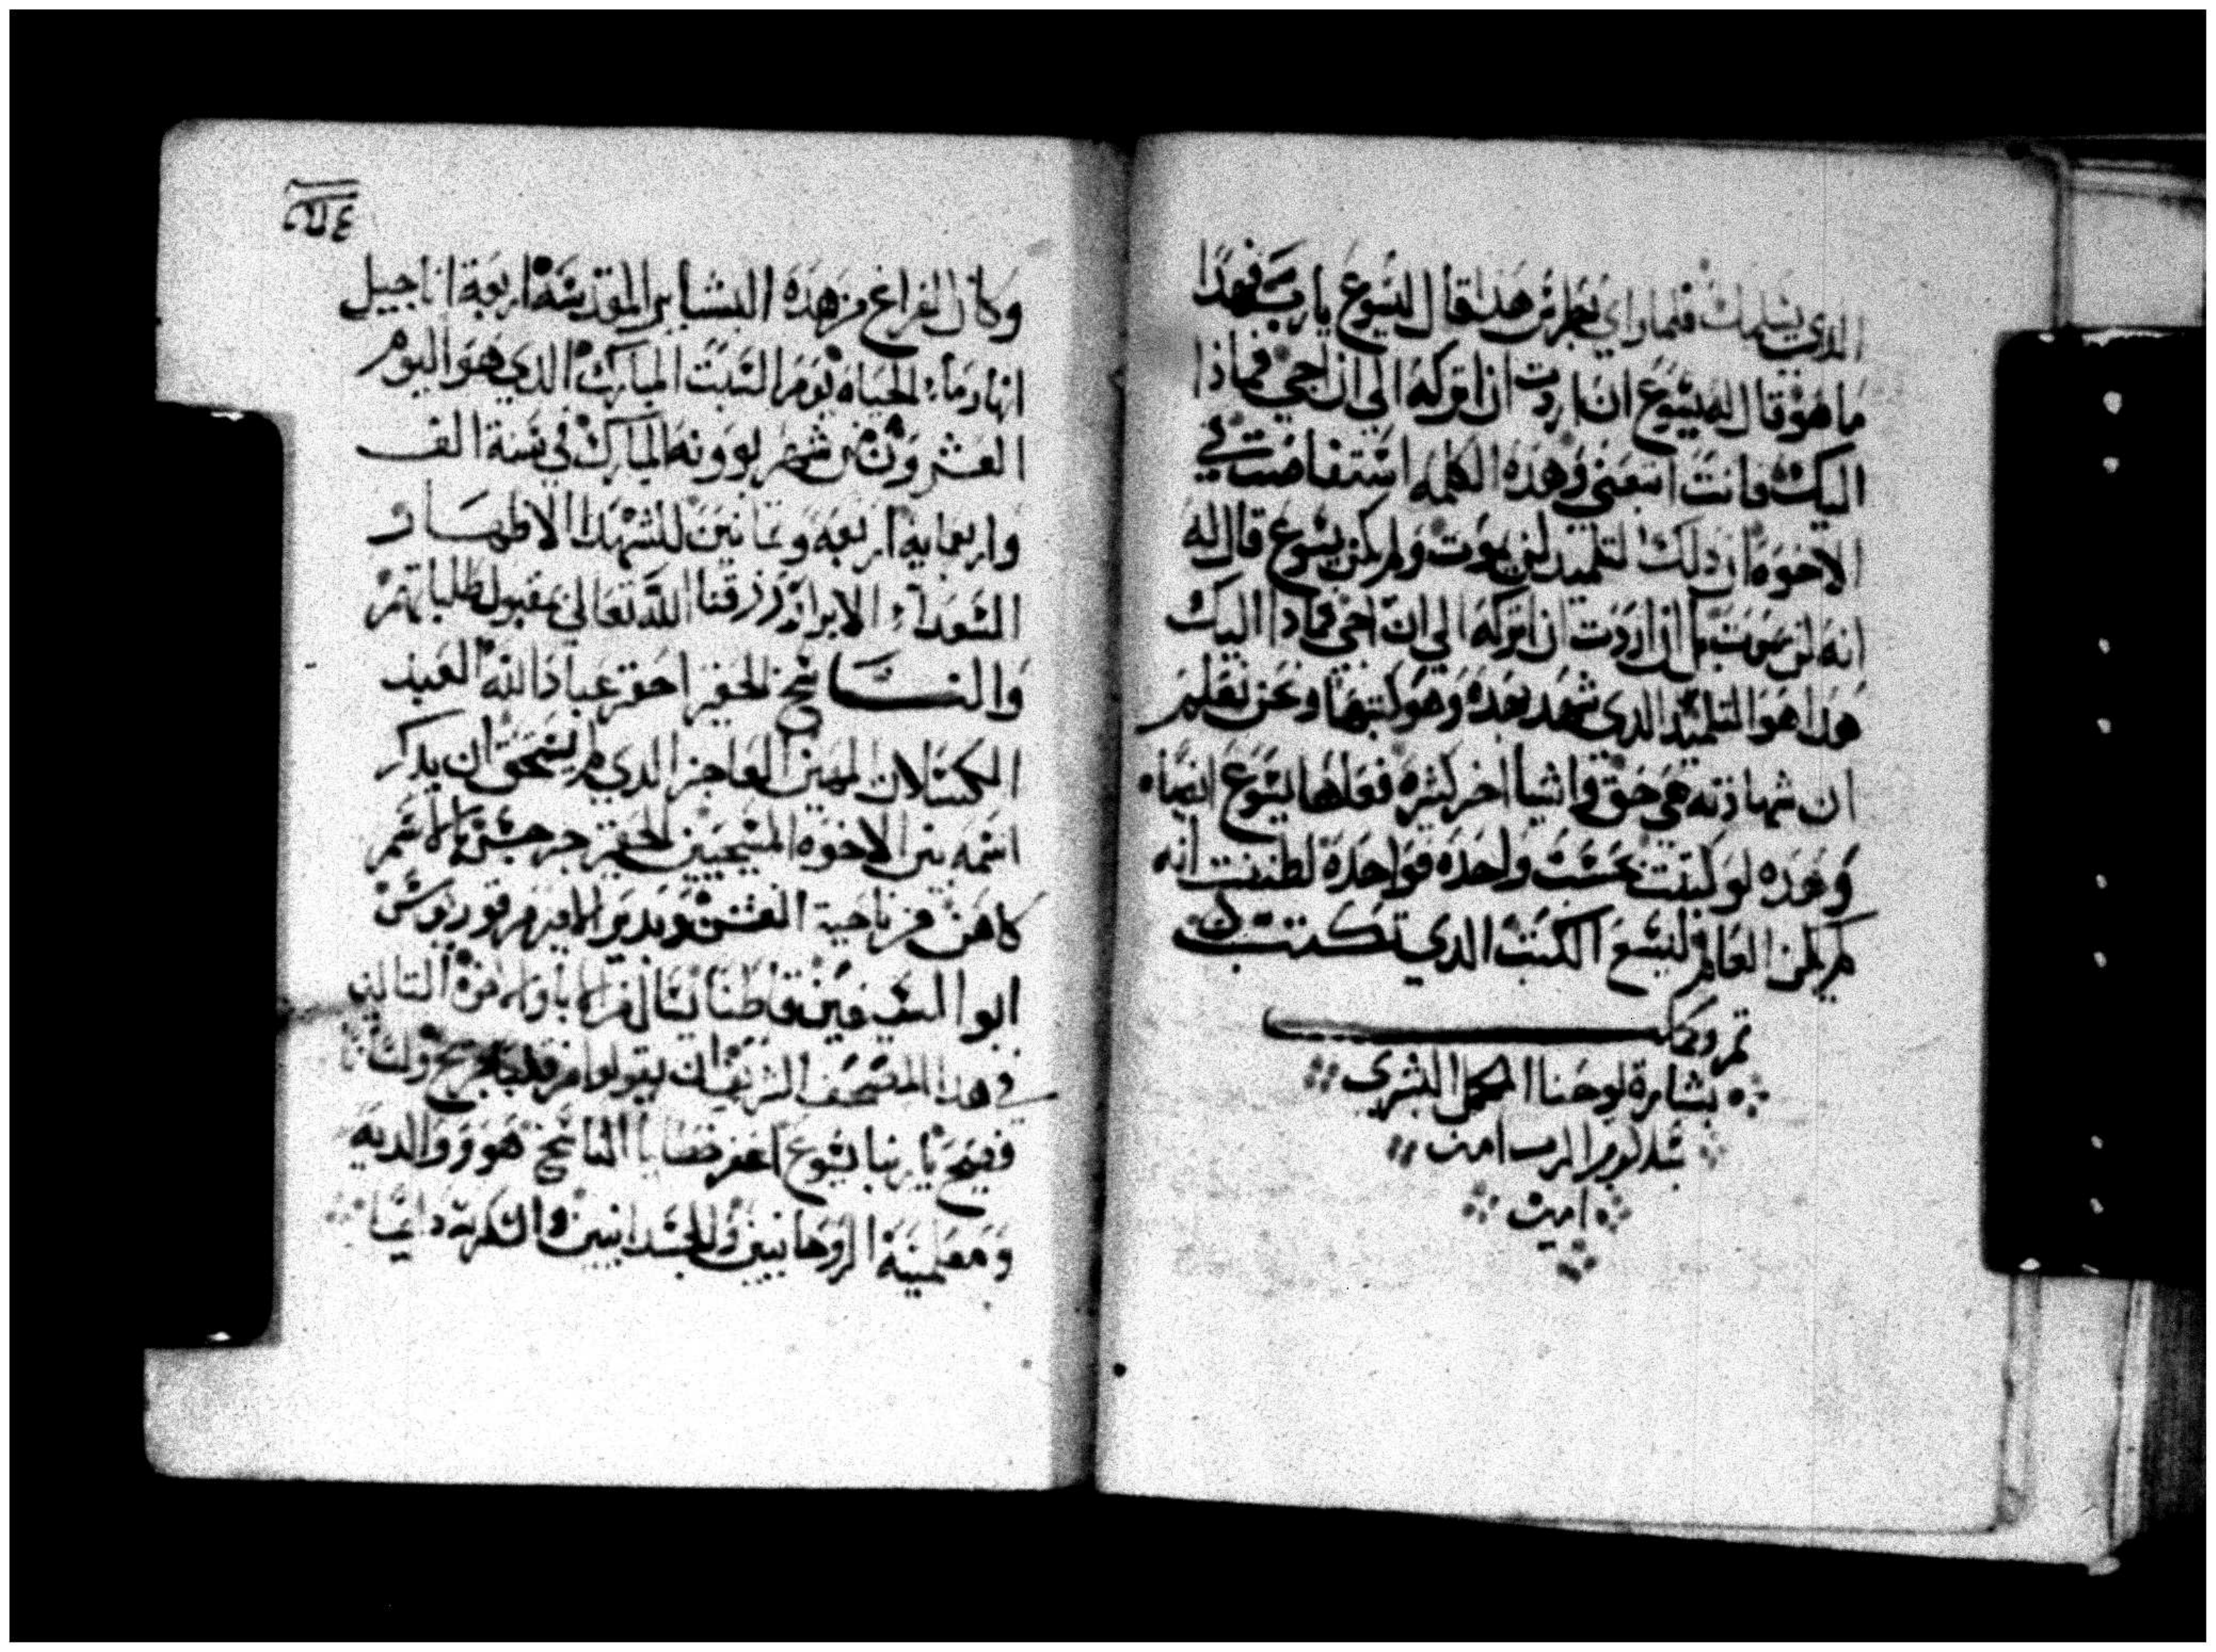 الذي يسلمك فلما راي بطرس هذا قال ليسوع يارب فهذا
ما هو قال له يسوع ان اردت ان اتركه الي ان اجي فماذا
اليك فانت اتبعني وهذه الكلمه استفاضت في
الاخوه ان دلك التلميد لن يموت ولم يكن يسوع قال له
انه لن يموت بل ان اردت ان اتركه الي ان اجي فمادا اليك
هدا هو التلميد الدي شهد بهده وهو كتبها ونحن نعلم
ان شهادته هي حق واشيا اخر كثيره فعلها يسوع ايضا
وهده لو كتبت واحده فواحده لظننت انه
لم يكن العالم ليسع الكتب الدي تكتب
تم وكمل
بشارة يوحنا البشري
بسلام الرب امين
امين
وكان الفراغ من هده البشاير المقدسه اربعة اناجيل
انهار ما الحياه يوم السبت المبارك الدي هو اليوم
العشرون من شهر بوونه المبارك في سنة الف
واربعمايه اربعه وثمانين للشهدا الاطهار
السعدا الابرار رزقنا الله تعالي بقبول طلباتهم
والناسخ الحقير احقر عباد الله العبيد
الكسلان المهين العاجز الدي لم يستحق ان يدكر
اسمه بين الاخوه المسيحيين الحقير جرجس بالاسم
كاهن من ناحية الفشن وبدير الامير مرقوريوس
ابو السيفين قاطنا يسال القراه باولاده التالين
في هدا المصحف الشريف ان يقولوا من
فصيح يا ربنا يسوع اغفر خطايا الناسخ هو ووالديه
ومعلمينه الروحانيين والجسدانيين والشكر لله دايما